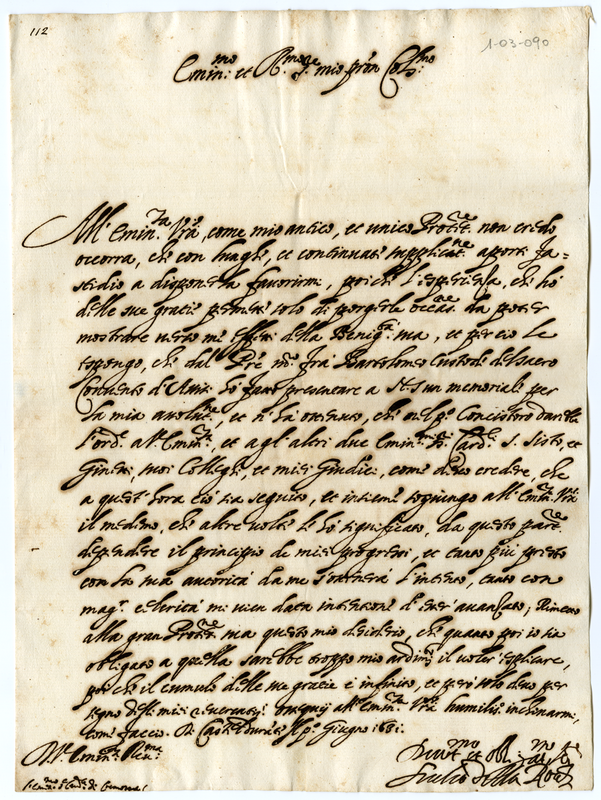 112
1-03-090
Emin.mo et R.mo Sig.re mio pron Col.mo
All' Emin.za Vra, come mio antico, et unico Protet.re non credo
occorra, che con lunghe, et continuate supplicat.ne aporti fa=
stidio a disponerla favorirmi, poiche l'esperienza, che hò
delle sue gratie permette solo di porgerle occas.ne da poter
mostrare verso me effetti della Benig.tà sua, et perciò le
espongo, che dal Pre Fra Bartolomeo Custode del sacro
Convento hò fatto presentare a S. Stà un memoriale per
la mia, et n'hà ottenuto, che nel p.o Concistoro darebbe
l'ord.e a V. Emin.za, et agl'altri due Emin.mi SS. Card.li S. Sisto, et
Ginetti, suoi Colleghi, et miei Giudici, come devo credere, che
a quest' hora ciò sia seguito, et insieme soggiungo all' Emin.za Vra
il medemo, che altre volte le hò significato, da questo
dependere il principio de miei progressi, et tanto più presto
con la sua autorità da me s'otterrà l'intento, tanto con
mag.r celerità mi vien data intentione d'esser avanzato; Rimetto
alla gran Protet.ne sua questo mio desiderio, che quanto poi io sia
obligato a quella sarebbe troppo mio ardim.to il voler esplicare,
poiche il cumulo delle sue gratie è infinito, et però solo devo per
segno delli miei reverenti ossequij all' Emin.za Vra humilis.e inchinarmi,
come faccio. Di Castel Durante il p.o Giugno
Di V. Emin.za Rev.ma
Devot.mo et obl.mo
Giulio della